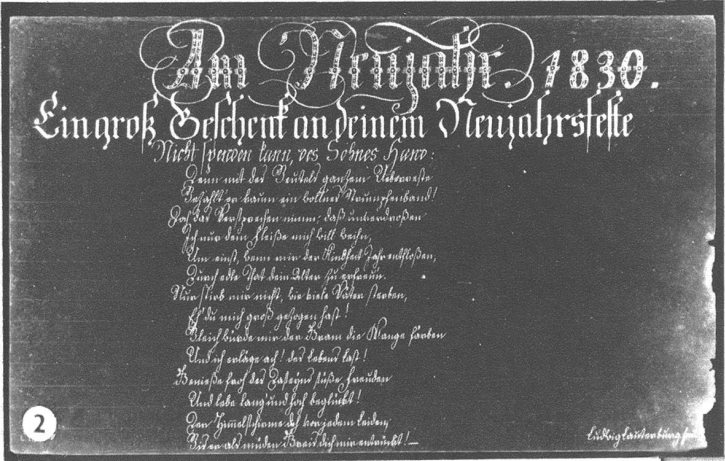 Am Neujahr. 1830.
Ein groß Geschenk an deinem Neujahrsfeste
Nicht spenden kann, des Sohnes Hand:
Denn mit des Beutels ganzem Ueberreste
Bezahlt er kaum ein
Doch das Versprechen nimm; daß unverdroßen
Ich nur dem Fleiße mich will weihn,
Um einst, wenn mir der Kindheit Jahr entfloßen,
Durch edle That dein Alter zu erfreun.
Nur stirb mir nicht, wie viele Väter sterben,
Eh' du mich groß gezogen hast!
Gleich würde mir der Gram die Wange färben
Und ich erläge ach! des Lebens Last!
Genieße froh des Daseyns süße Freuden
Und lebe lang und hoch beglückt!
Der Himmel schirme dich vor jedem Leiden,
Bis er als müden Greis dich mir entrückt! _
Ludwig Lauterburg
2